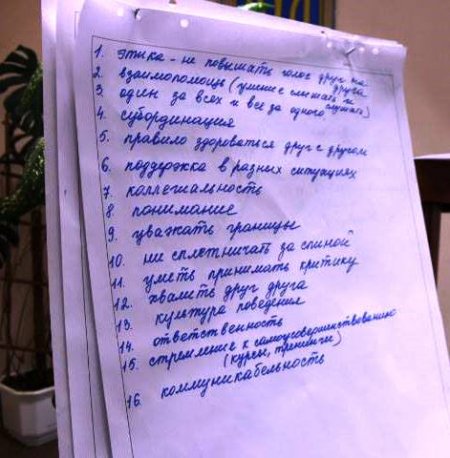 1. этика - не повышать голос друг на друга
2. взаимопомощь (умение слышать и слушать)
3. один за всех и все за одного
4. субординация
5. правило здороваться друг с другом
6. поддержка в разных ситуациях
7. коллегиальность
8. понимание
9. уважать границы
10. не сплетничать за спиной
11. уметь принимать критику
12. хвалить друг друга
13. культура поведения
14. ответственность
15. стремление к самоусовершенствованию
(курсы, тренинги)
16. коммуникабельность